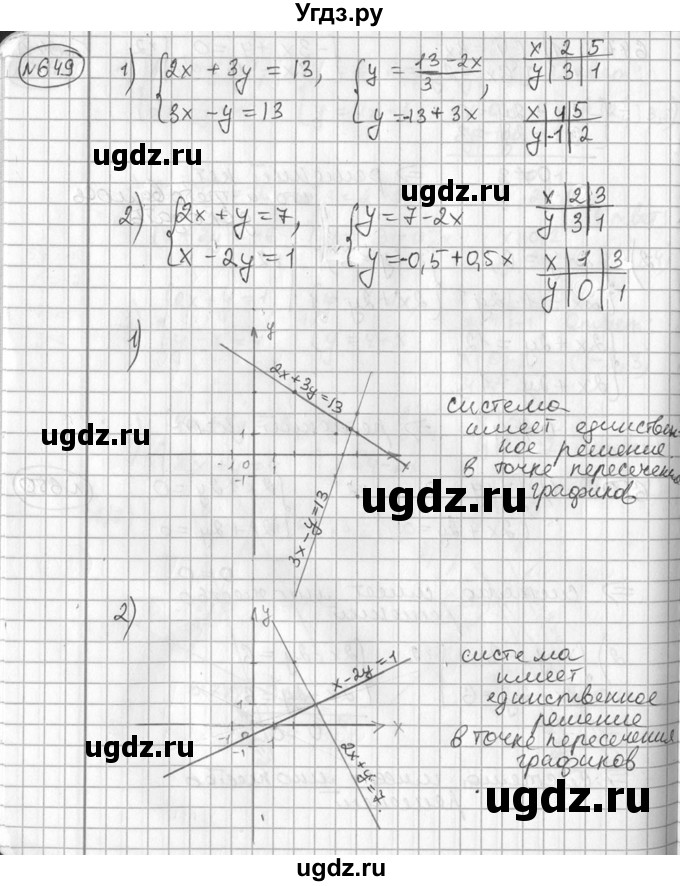 Угдз.ру
№649
1) { 2x + 3y = 13, { y = (13 - 2x)/3, x | 2 | 5
y | 3 | 1
3x - y = 13 y = -13 + 3x x | 4 | 5
y | -1 | 2
ugdz.ru
ugdz.ru
2) { 2x + y = 7, { y = 7 - 2x x | 2 | 3
y | 3 | 1
x - 2y = 1 y = -0,5 + 0,5x x | 1 | 3
y | 0 | 1
ugdz.ru
1) y
2x + 3y = 13
система
имеет единствен-
ное решение
в точке пересечения
графиков
1
-1 0 1 x
-1
3x - y = 13
ugdz.ru
ugdz.ru
2) y
x - 2y = 1
система
имеет
единственное
решение
в точке пересечения
графиков
1
-1 0 1 x
-1
2x + y = 7
ugdz.ru
ugdz.ru
ugdz.ru